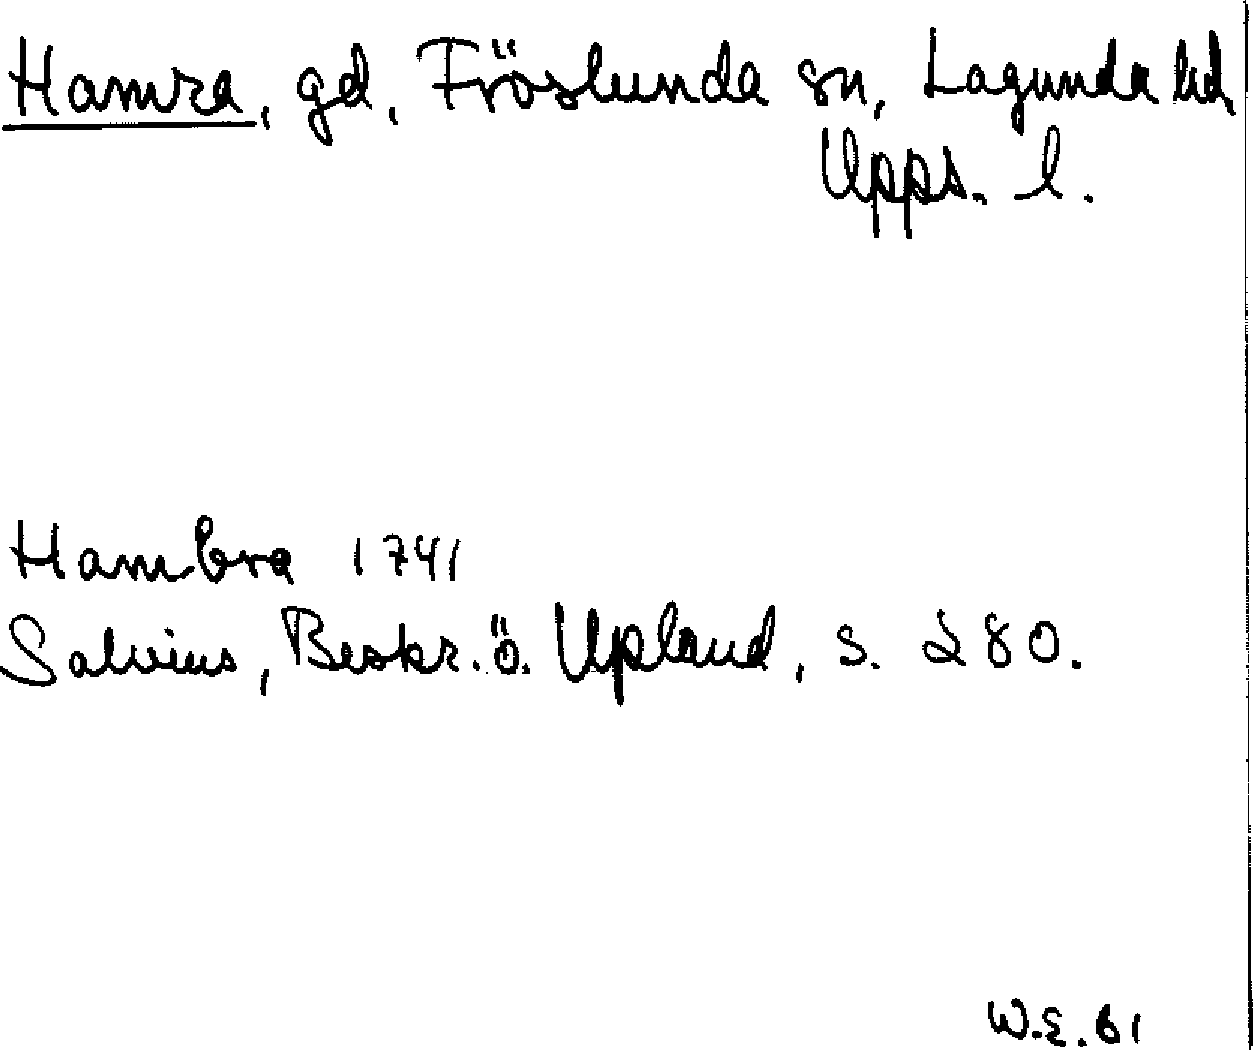 Hamra, gd, Fröslunda sn, Lagunda hd
Upps. l.
Hambra 1741
Salvius, Beskr. ö. Upland, s. 280.
W.E. 61